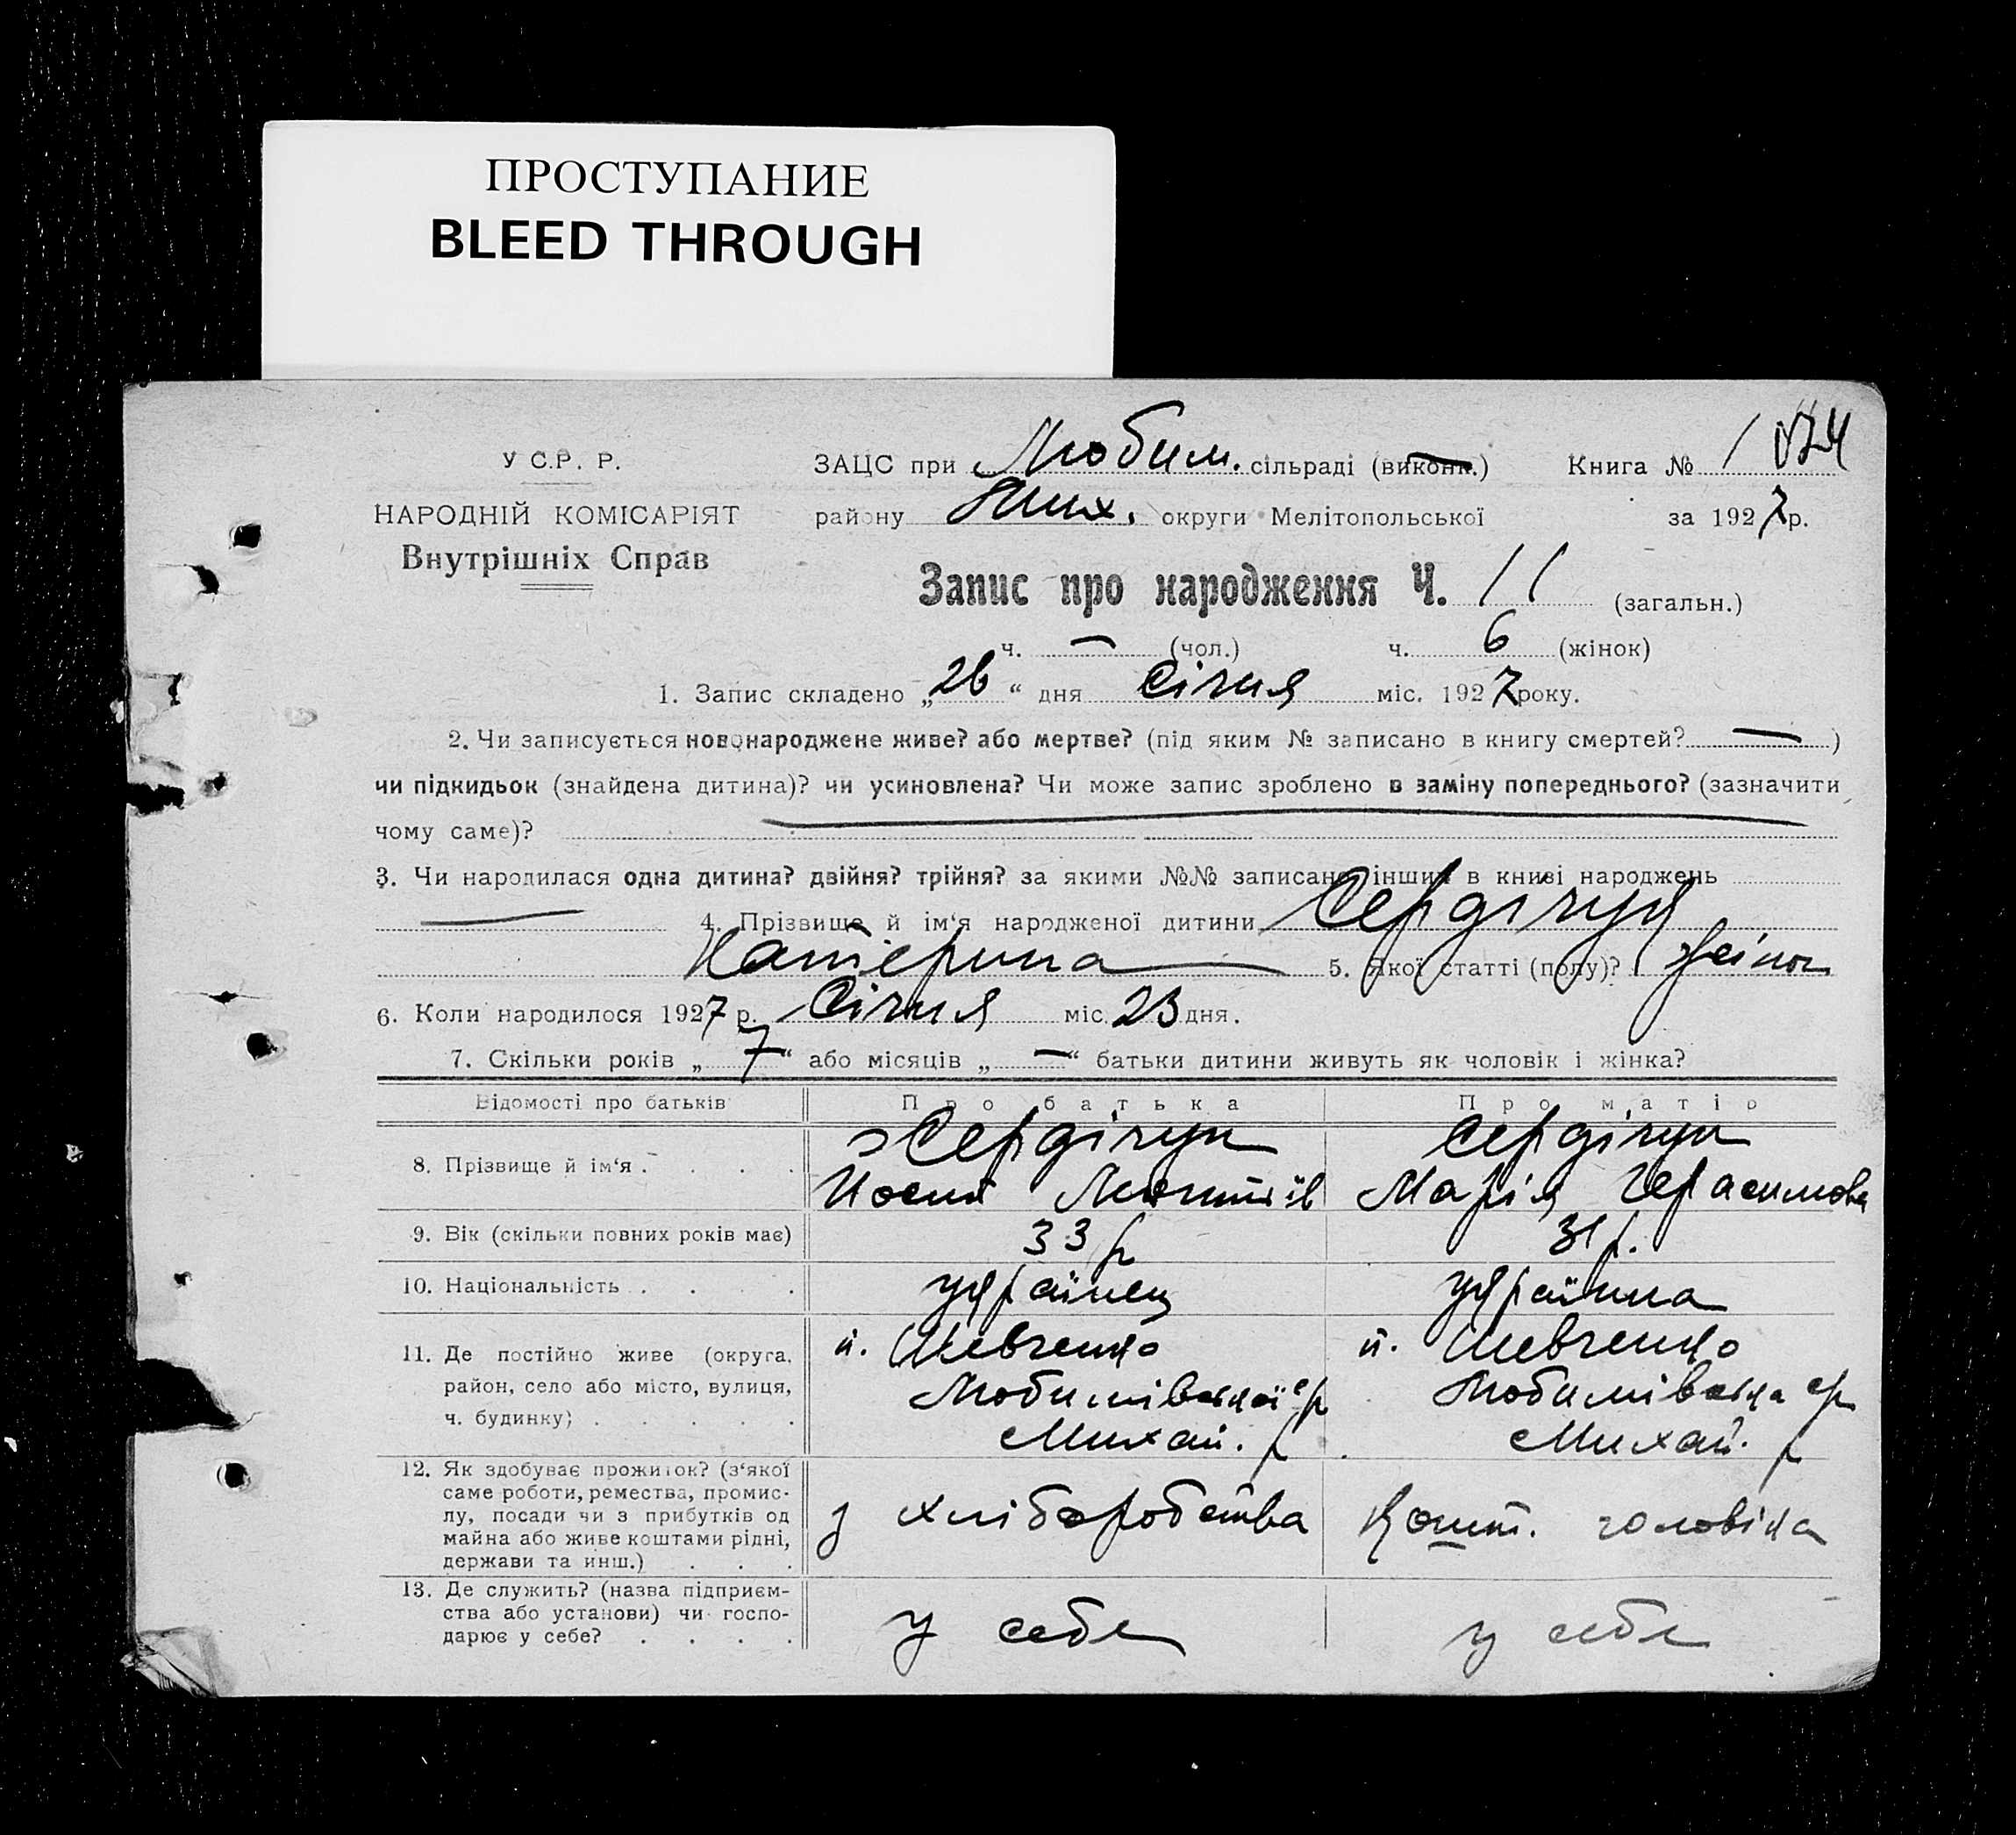 ПРОСТУПАНИЕ
BLEED THROUGH
У С.Р. Р.
НАРОДНІЙ КОМІСАРІЯТ
Внутрішніх Справ
ЗАЦС при Любим. сільраді (викон̶к̶.) Книга № 1
району Мих. округи Мелітопольської за 1927 р.
Запис про народження Ч. 11 (загальн.)
ч. — (чол.) ч. 6 (жінок)
1. Запис складено „26“ дня Січня міс. 1927 року.
2. Чи записується новонароджене живе? або мертве? (під яким № записано в книгу смертей? — )
чи підкидьок (знайдена дитина)? чи усиновлена? Чи може запис зроблено в заміну попереднього? (зазначити
чому саме)?
3. Чи народилася одна дитина? двійня? трійня? за якими №№ записано інших в книзі народжень
— 4. Прізвище й ім‘я народженої дитини Сердічук
Катерина — 5. Якої статті (полу)? жінок
6. Коли народилося 1927 р. Січня міс. 23 дня.
7. Скільки років „7“ або місяців „—“ батьки дитини живуть як чоловік і жінка?
Відомості про батьків Про батька Про матір
8. Прізвище й ім‘я . . . . Сердічук Сердічук
Йосип Марія Герасимова
9. Вік (скільки повних років має) 33 р 31 р.
10. Національність . . . . українец українка
11. Де постійно живе (округа, п. Шевченко п. Шевченко
район, село або місто, вулиця, Любимівської с/р Любимівська с/р
ч. будинку) . . . . . Михай. р Михай. р
12. Як здобуває прожиток? (з‘якої
саме роботи, ремества, промис-
лу, посади чи з прибутків од з хліборобства Кошт. чоловіка
майна або живе коштами рідні,
держави та инш.) . . .
13. Де служить? (назва підприєм-
ства або установи) чи госпо- у себе у себе
дарює у себе? . . . .